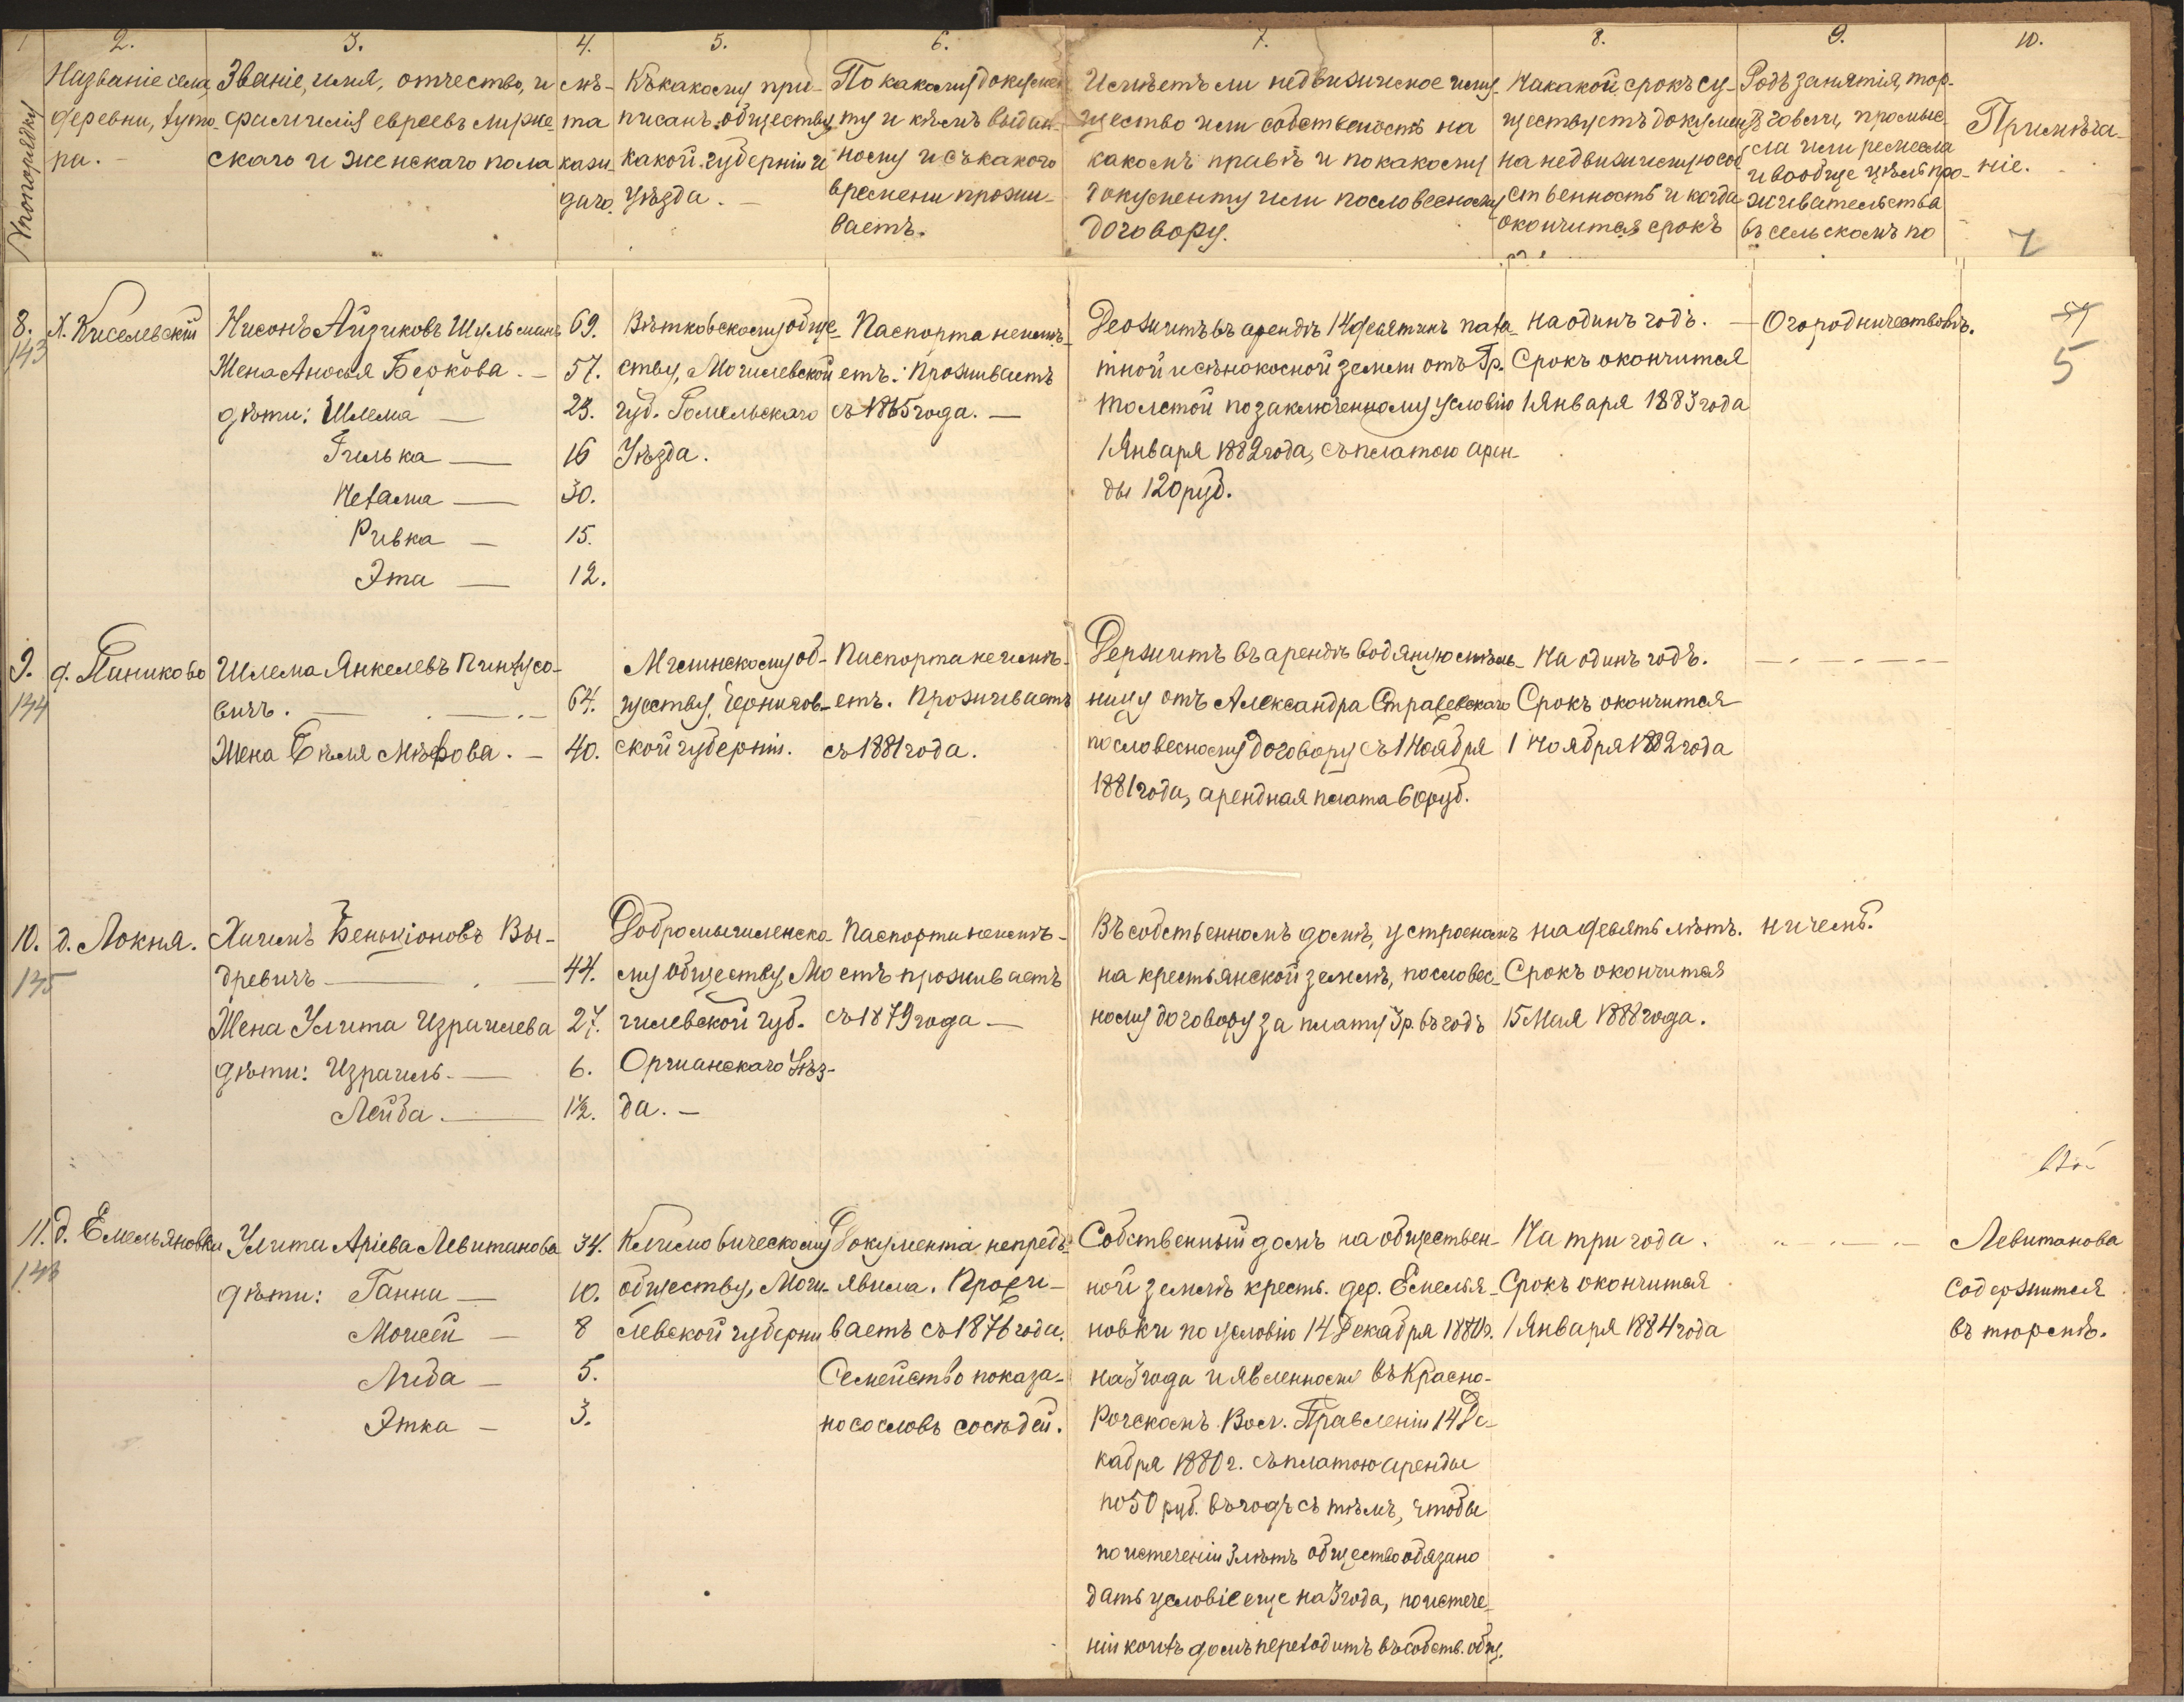 1
2.
3.
4.
5.
6.
7.
8.
9.
10.
№ по порядку
Названіе села,
деревни, хуто-
ра.
Званіе, имя, отчество, и
фамилія евреевъ мужe-
скаго и женскаго пола
лѣ-
та
кажд
даго.
Къ какому при-
писанъ обществу
какой губерніи и
уѣзда. —
По какому докумен
ту и кѣмъ выдан-
ному и съ какого
времени прожи-
ваетъ.
Имѣетъ ли недвижимое иму-
щество или собственность на
какомъ правѣ и по какому
документу или по словесному
договору.
На какой срокъ су-
ществуетъ документъ
на недвижимую соб
ственность и когда
окончится срокъ
Родъ занятія, тор-
говли, промыс-
ла или ремесла
и вообще цѣль про-
живательства
въ сельскомъ по
Примѣча-
ніе.
7
8.
143
х. Киселевскій
Нисонъ Айзиковъ Шульманъ
69.
Жена Аносья Беркова. —
57.
дѣти: Шлема —
23.
Гилька —
16
Нехама —
30.
Ривка —
15.
Эта —
12.
Вѣтковскому обще-
ству, Могилевской
губ. Гомельскаго
Уѣзда.
Паспорта неимѣ-
етъ. Проживаетъ
съ 1865 года. —
Держитъ въ арендѣ 14 десятинъ паха-
тной и сѣнокосной земли отъ Гр.
Толстой по заключенному условію
1 Января 1882 года, съ платою арен-
ды 120 руб.
На одинъ годъ. —
Срокъ окончится
1 Января 1883 года
Огородничествомъ.
5
9.
144
д. Паниково
Шлема Янкелевъ Пинхусо-
вичъ. —
64.
Жена Бѣля Мѣрова. —
40.
Мглинскому об-
ществу, Чернигов-
ской губерніи.
Паспорта неимѣ-
етъ. Проживаетъ
съ 1881 года.
Держитъ въ арендѣ водяную мѣль-
ницу отъ Александра Страшевскаго
по словесному договору съ 1 Ноября
1881 года, арендная плата 60 руб.
На одинъ годъ.
Срокъ окончится
1 Ноября 1882 года
10.
145
д. Локня.
Хаимъ Беньціоновъ Вы-
древичъ —
44.
Жена Улита Израилева
27.
дѣти: Израиль. —
6.
Лейба. —
1½.
Добромысленско-
му обществу, Мо
гилевской губ.
Оршанскаго Уѣз-
да. —
Паспорта неимѣ-
етъ проживаетъ
съ 1879 года —
Въ собственномъ домѣ, устроеномъ
на крестьянской землѣ, по словес-
ному договору за плату 3 р. въ годъ
на девять лѣтъ.
Срокъ окончится
15 Мая 1888 года.
ничемъ.
11.
146
д. Емельяновка
Улита Аріева Левитанова
34.
дѣти: Ганна —
10.
Моисей —
8
Лида —
5.
Этка —
3.
Климовическому
обществу, Моги-
левской губерни
Документа непредъ-
явила. Прожи-
ваетъ съ 1876 года.
Семейство показа-
но со словъ сосѣдей.
Собственный домъ на обществен-
ной землѣ кресть. дер. Емелья-
новки по условію 14 Декабря 1880 г.
на 3 года и явленному въ Красно-
Рогскомъ Вол. Правленіи 14 Де-
кабря 1880 г. съ платою аренды
по 50 руб. въ годъ съ тѣмъ, чтобы
по истеченіи 3 лѣтъ общество обязано
дать условіе еще на 3 года, по истече-
ніи коихъ домъ переходитъ въ собств. общ.
На три года.
Срокъ окончится
1 Января 1884 года
Левитанова
содержится
въ тюрьмѣ.